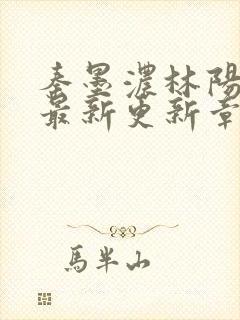 秦墨濃林陽
最新更新章
馬半山